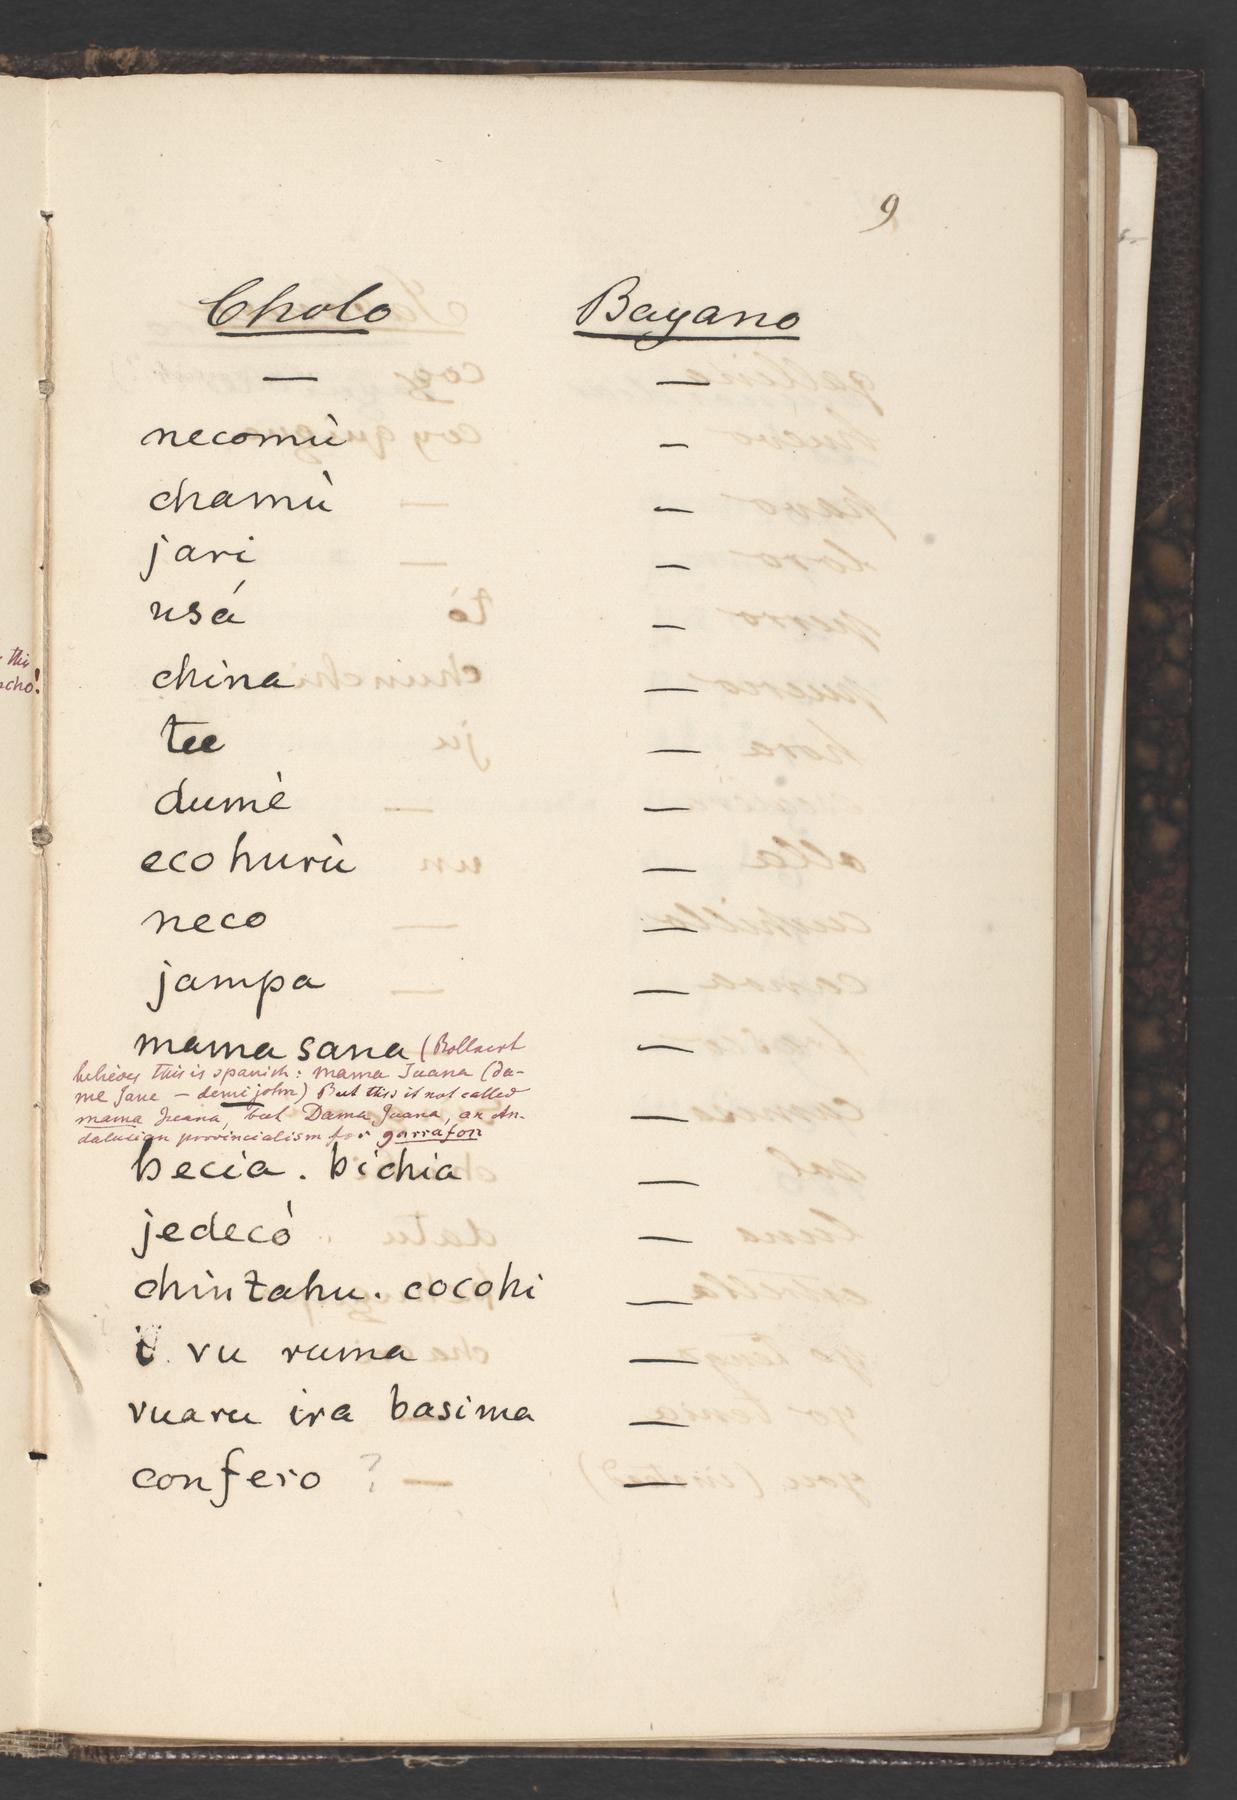 9
Cholo Bayano
— —
necomù —
chamù —
jari —
usá —
this
china —
cho!
tee —
dumè —
ecohurù —
neco —
jampa —
mama sana (Bollaert —
believes this is spanish: mama Juana (da-
me Jane — demijohn) But this is not called
mama Juana, but Dama Juana, an An- —
dalusian provincialism for garrafon
becia. bichia —
jedecò —
chintahu. cocohi —
i vu ruma —
vuaru ira basima —
confero ? —